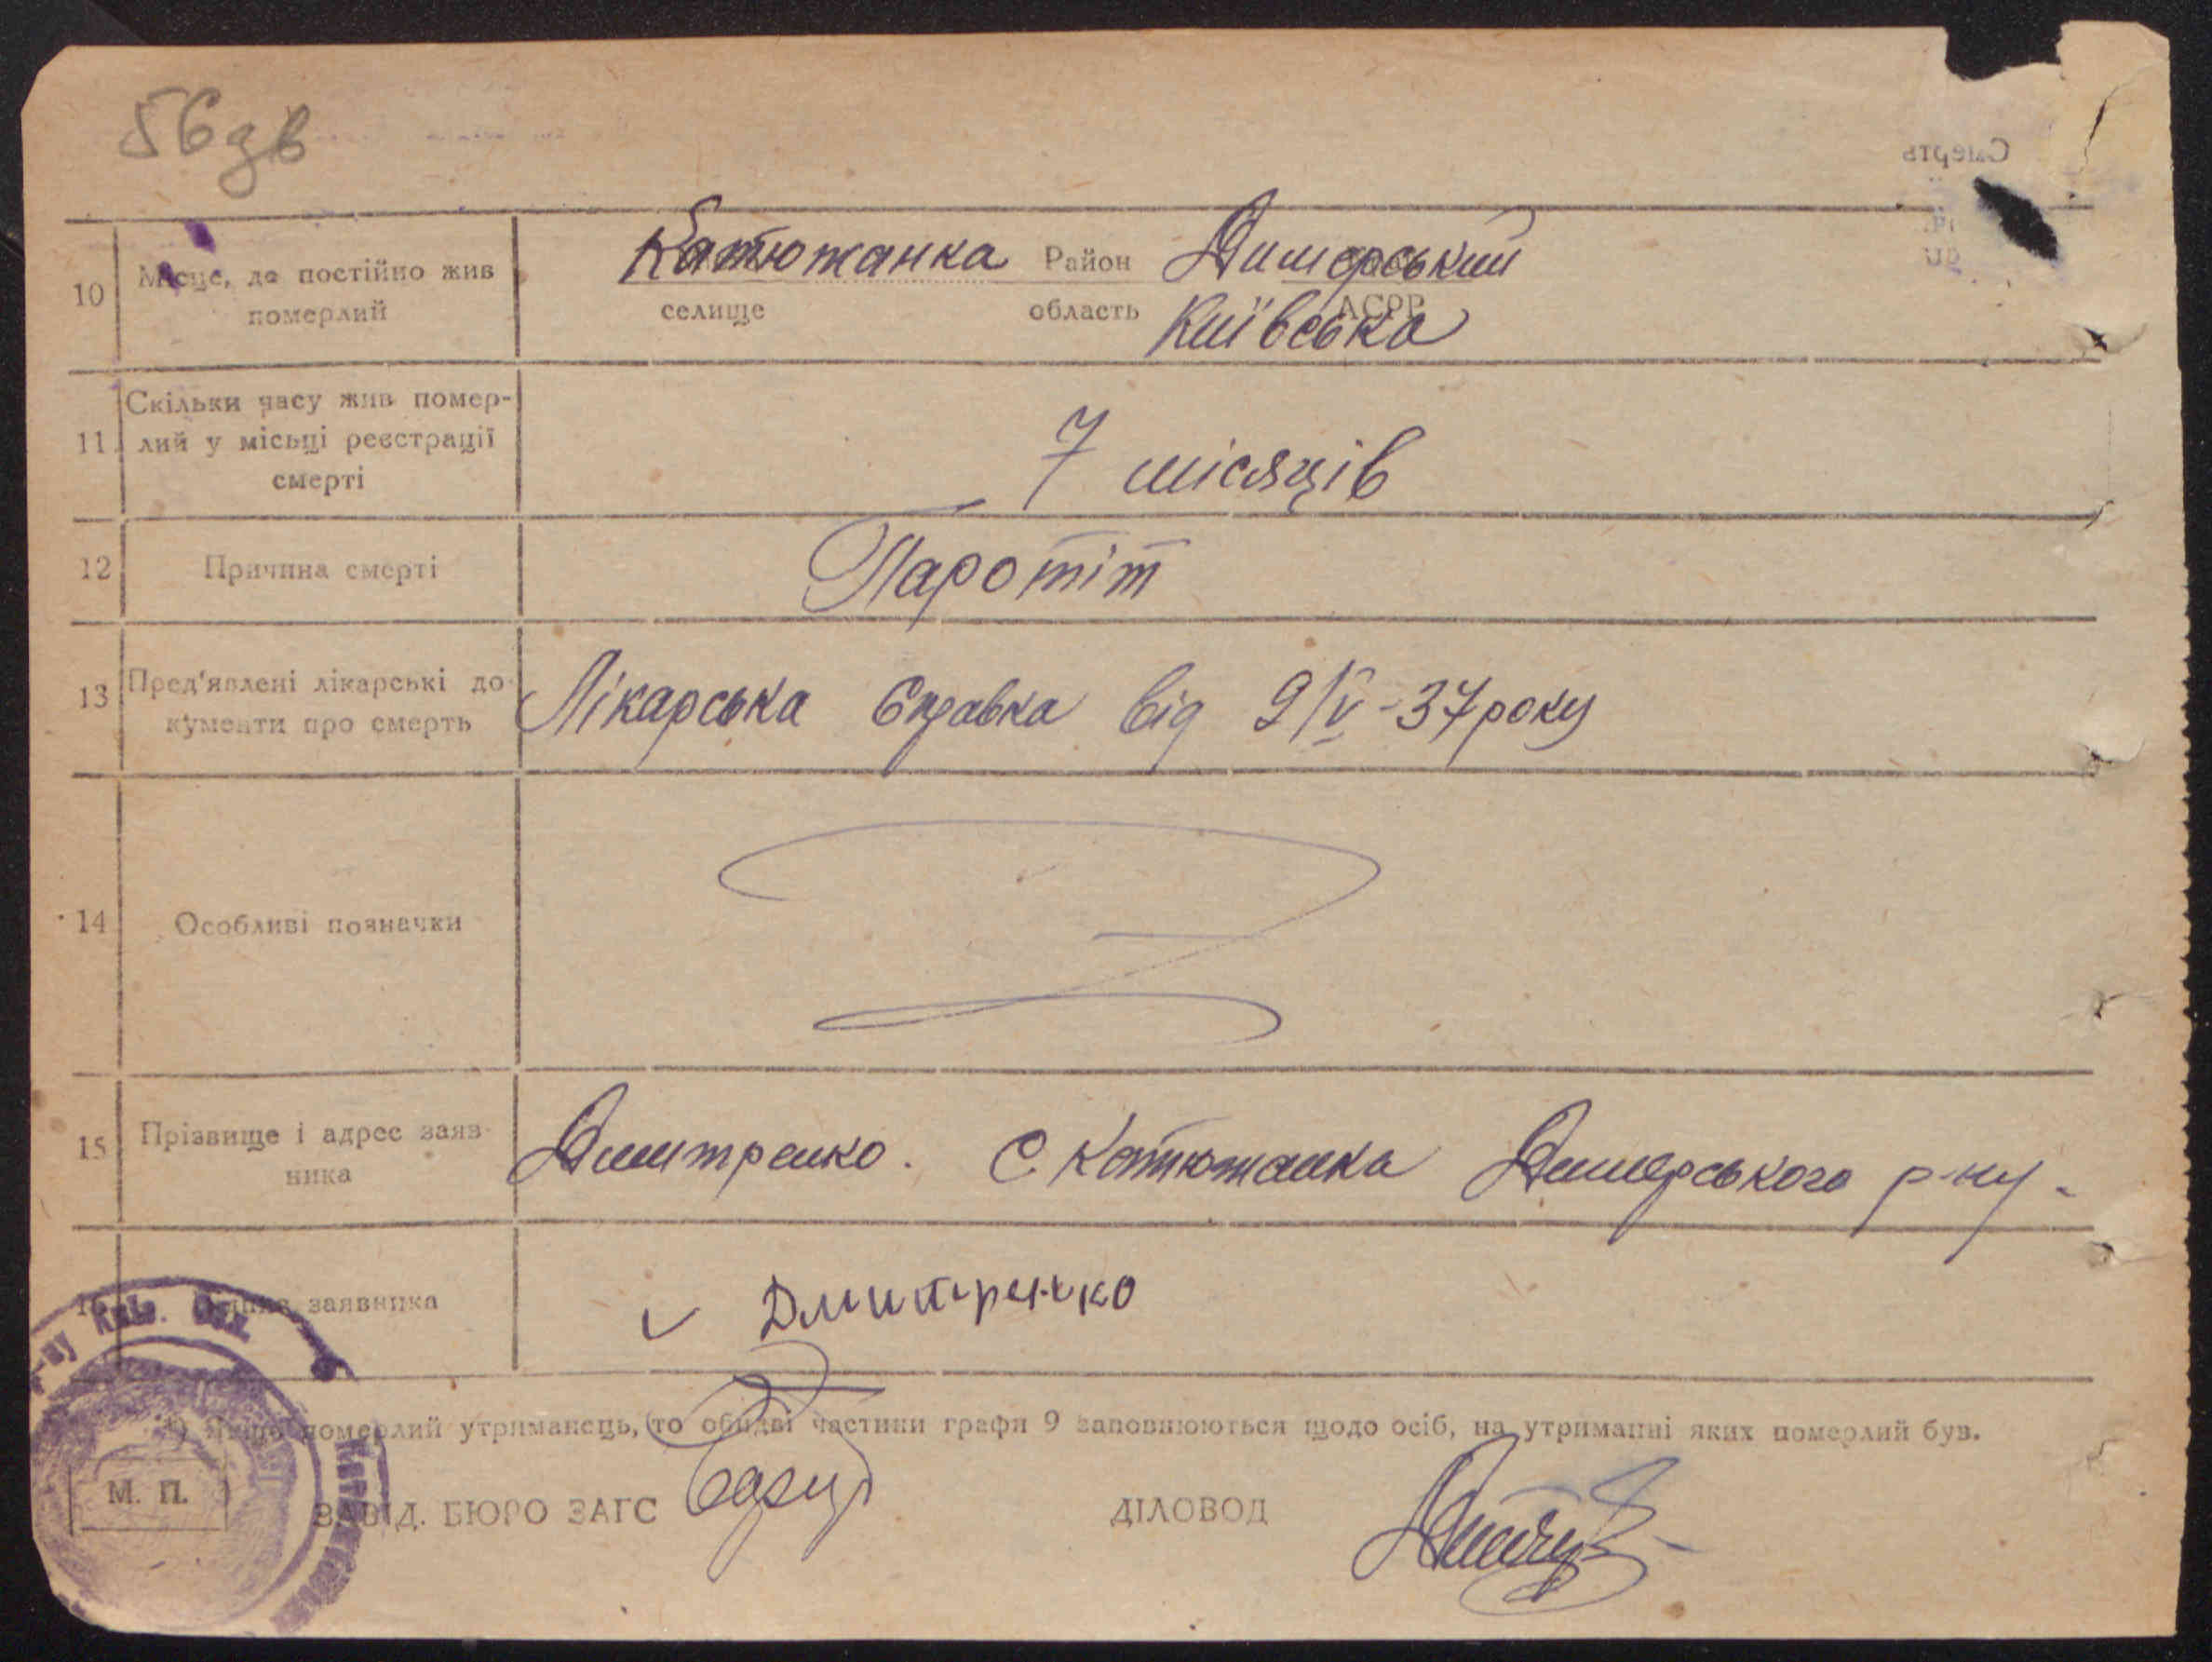 56 дв
Катюжанка Район Димерський
10 Місце, де постійно жив
померлий
селище область АСРР
Київська
Скільки часу жив помер-
11 лий у місьці реєстрації
смерті
7 місяців
12 Причина смерті Паротіт
13 Пред'явлені лікарські до
кументи про смерть
Лікарська Справка від 9/V-37 року
14 Особливі позначки
15 Прізвище і адрес заяв-
ника
Дмитренко. С Катюжанка Димерського р-ну.
16 заявника
Дмитренко
р-ну Київ. Обл.
1) Якщо померлий утриманець, то обидві частини графи 9 заповнюються щодо осіб, на утриманні яких померлий був.
М. П.
ЗАВІД. БЮРО ЗАГС ДІЛОВОД
Смерть